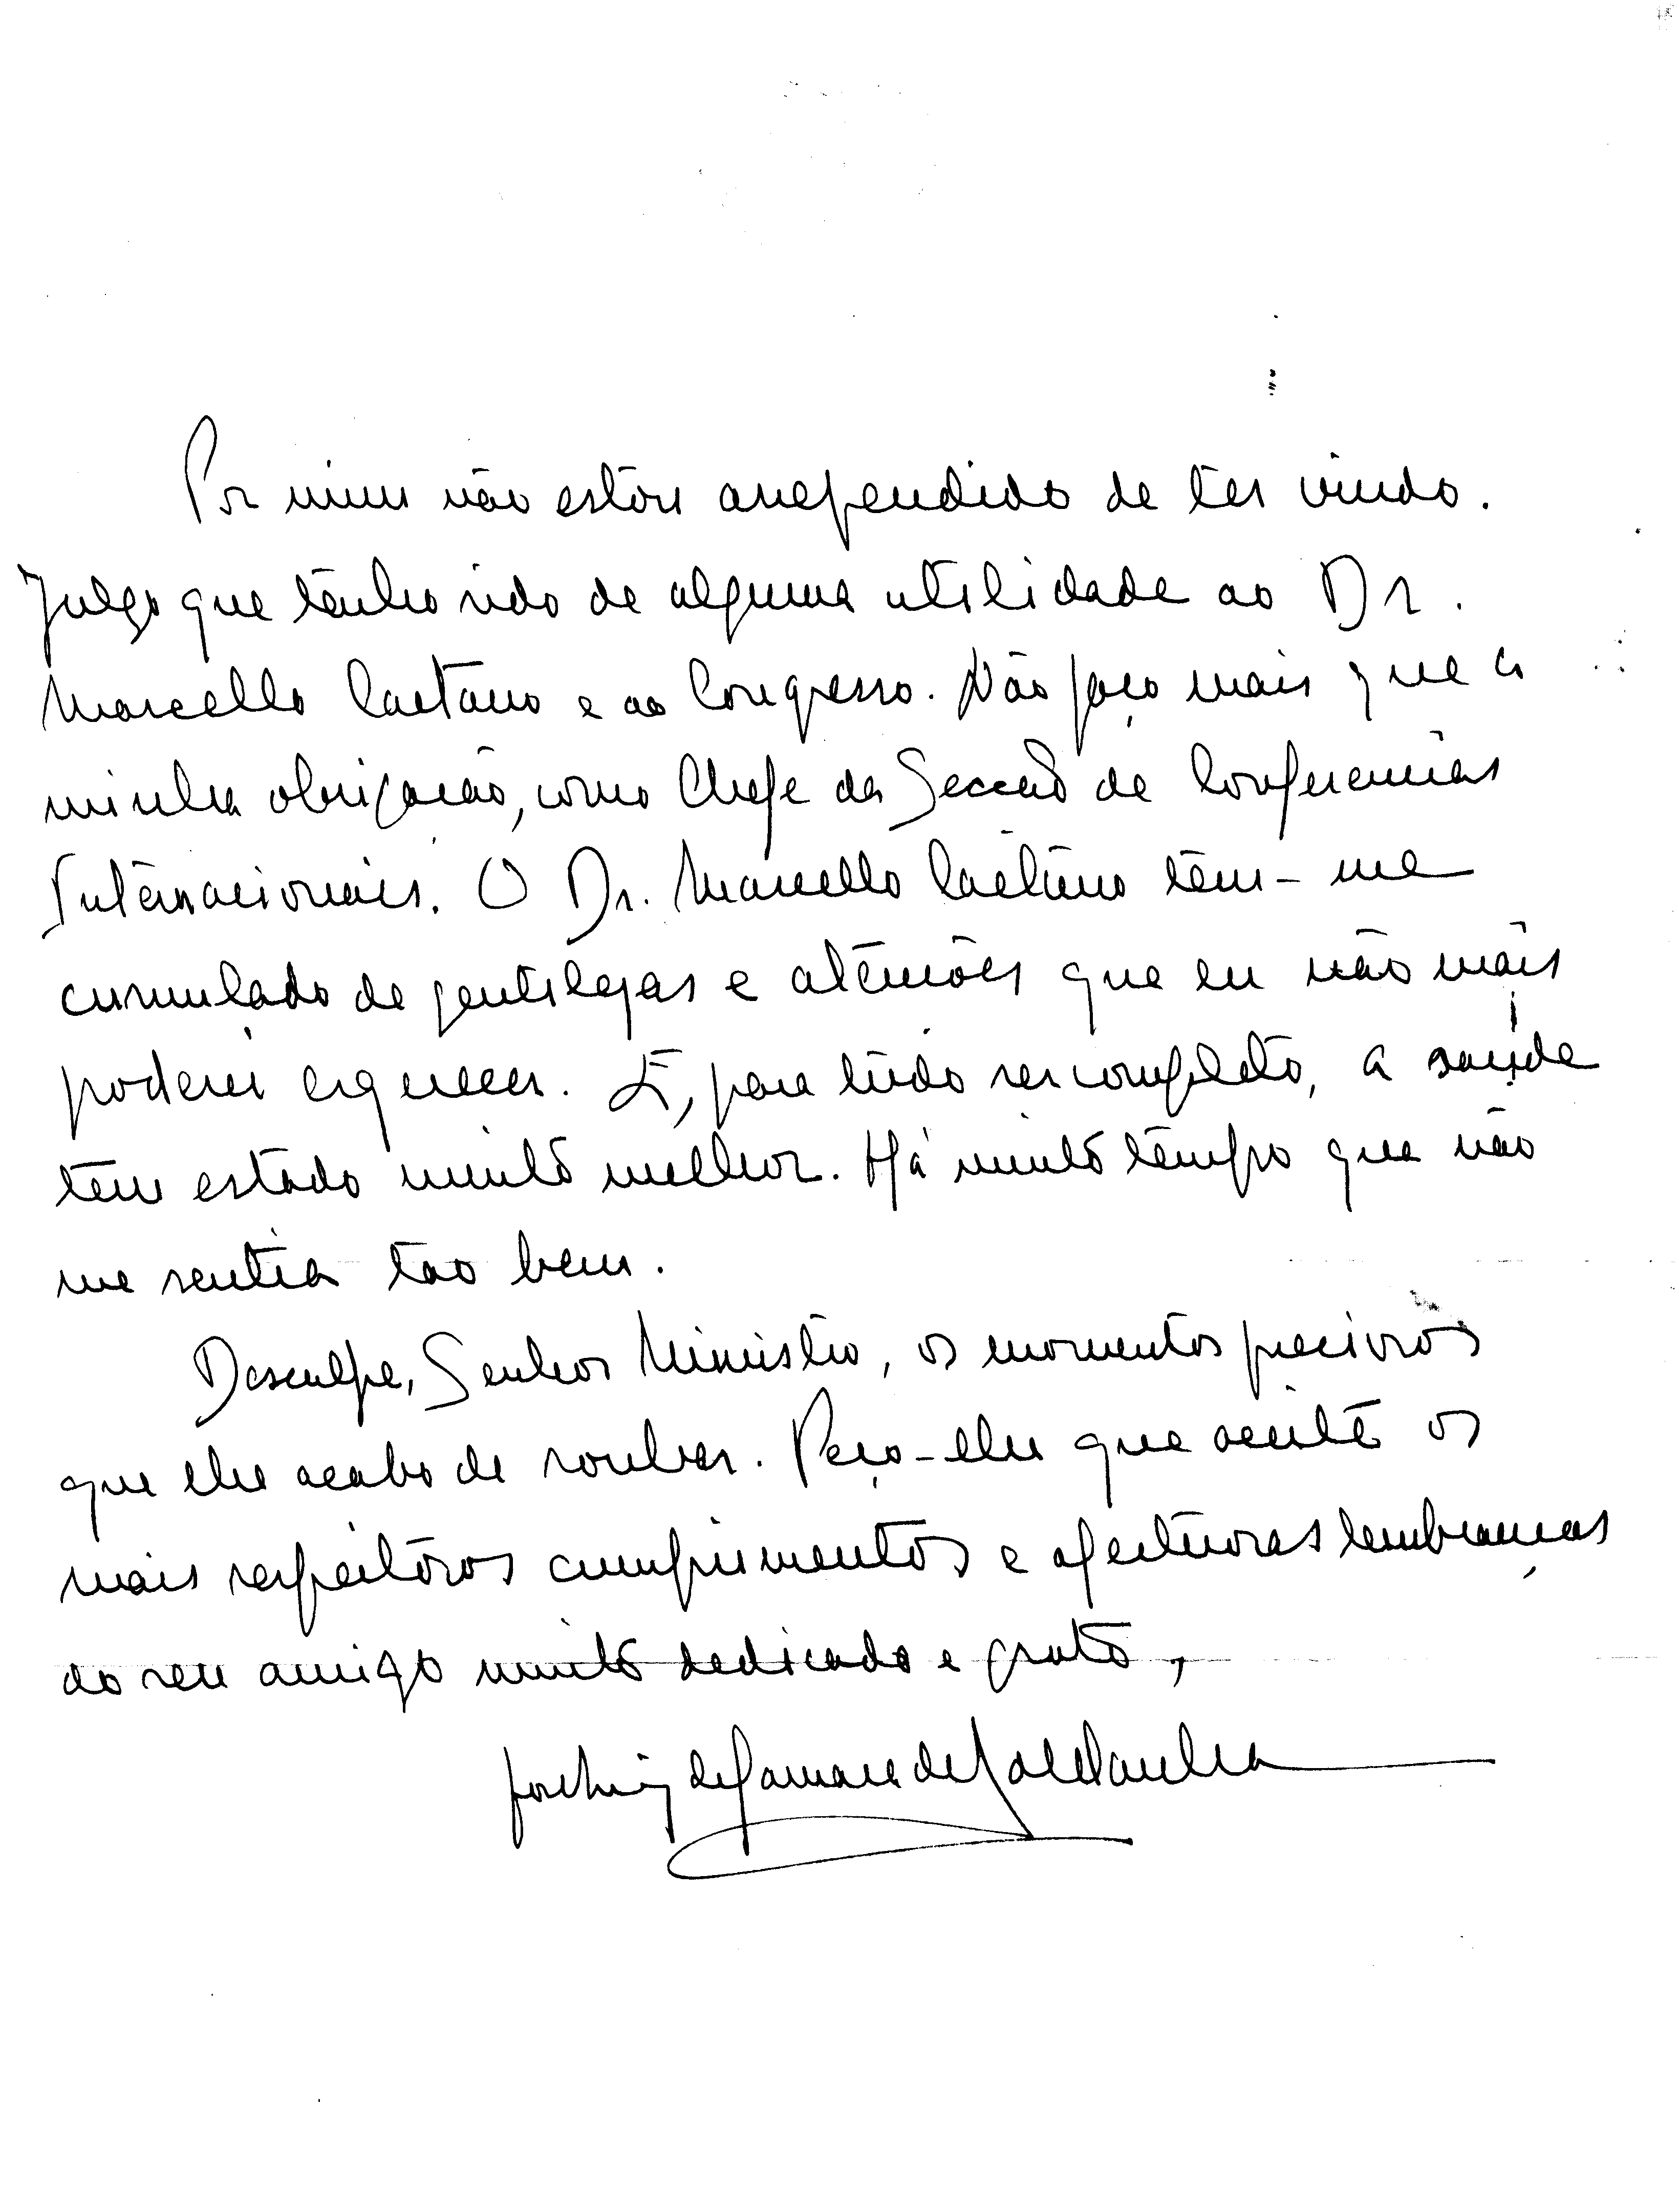 Por mim não estou arrependido de ter vindo.
Julgo que tenho sido de alguma utilidade ao Dr.
Marcello Caetano e ao Congresso. Não faço mais que a
minha obrigação, como Chefe da Secção de Conferências
Internacionais. O Dr. Marcello Caetano tem-me
cumulado de gentilezas e atenções que eu não mais
poderei esquecer. E, para tudo ser completo, a saúde
tem estado muito melhor. Há muito tempo que não
me sentia tão bem.
Desculpe, Senhor Ministro, os momentos preciosos
que lhe acabo de roubar. Peço-lhe que aceite os
mais respeitosos cumprimentos e afectuosas lembranças
do seu amigo muito dedicado e grato,
de Saldanha